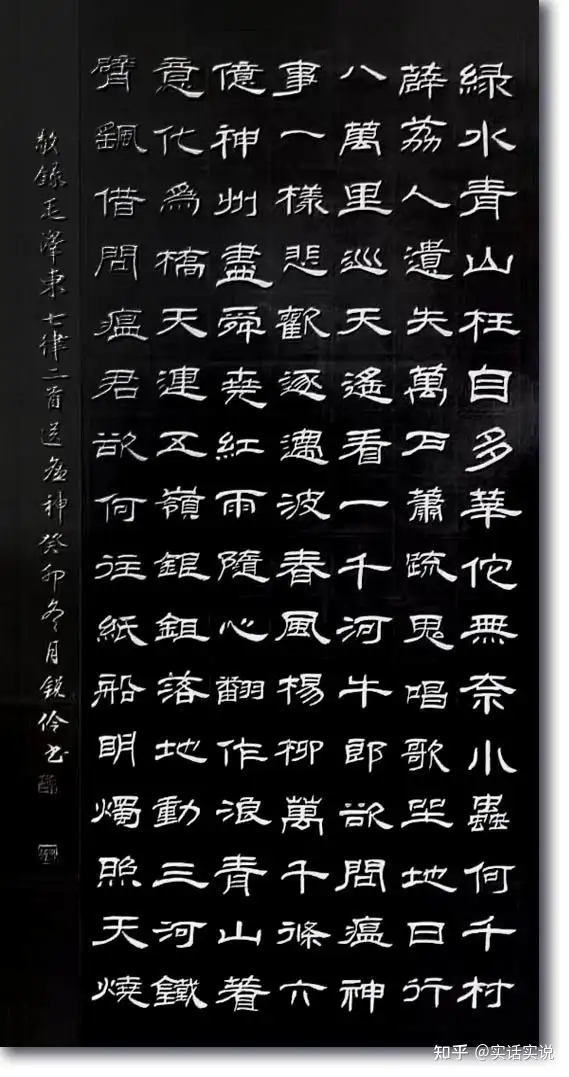 緑水青山枉自多華佗無奈小蟲何千村
薜荔人遺失萬戸蕭疏鬼唱歌坐地日行
八萬里巡天遙看一千河牛郎欲問瘟神
事一樣悲歡逐遇波春風楊柳萬千條六
億神州盡舜堯紅雨隨心翻作浪青山着
意化爲橋天連五嶺銀鉏落地動三河鐵
臂借問瘟君欲何往紙船明燭照天燒
敬錄毛澤東七律二首送瘟神癸卯冬月銳伶书
知乎 @实话实说